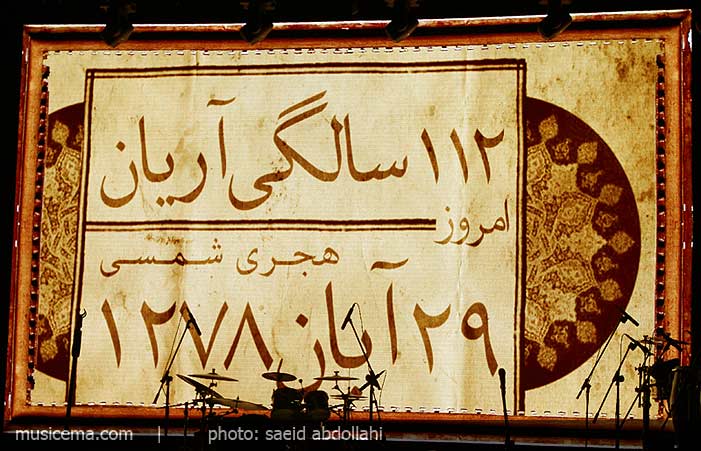 ۱۱۲ سالگی آریان
امروز
هجری شمسی
۲۹ آبان ۱۲۷۸
musicema.com | photo: saeid abdollahi